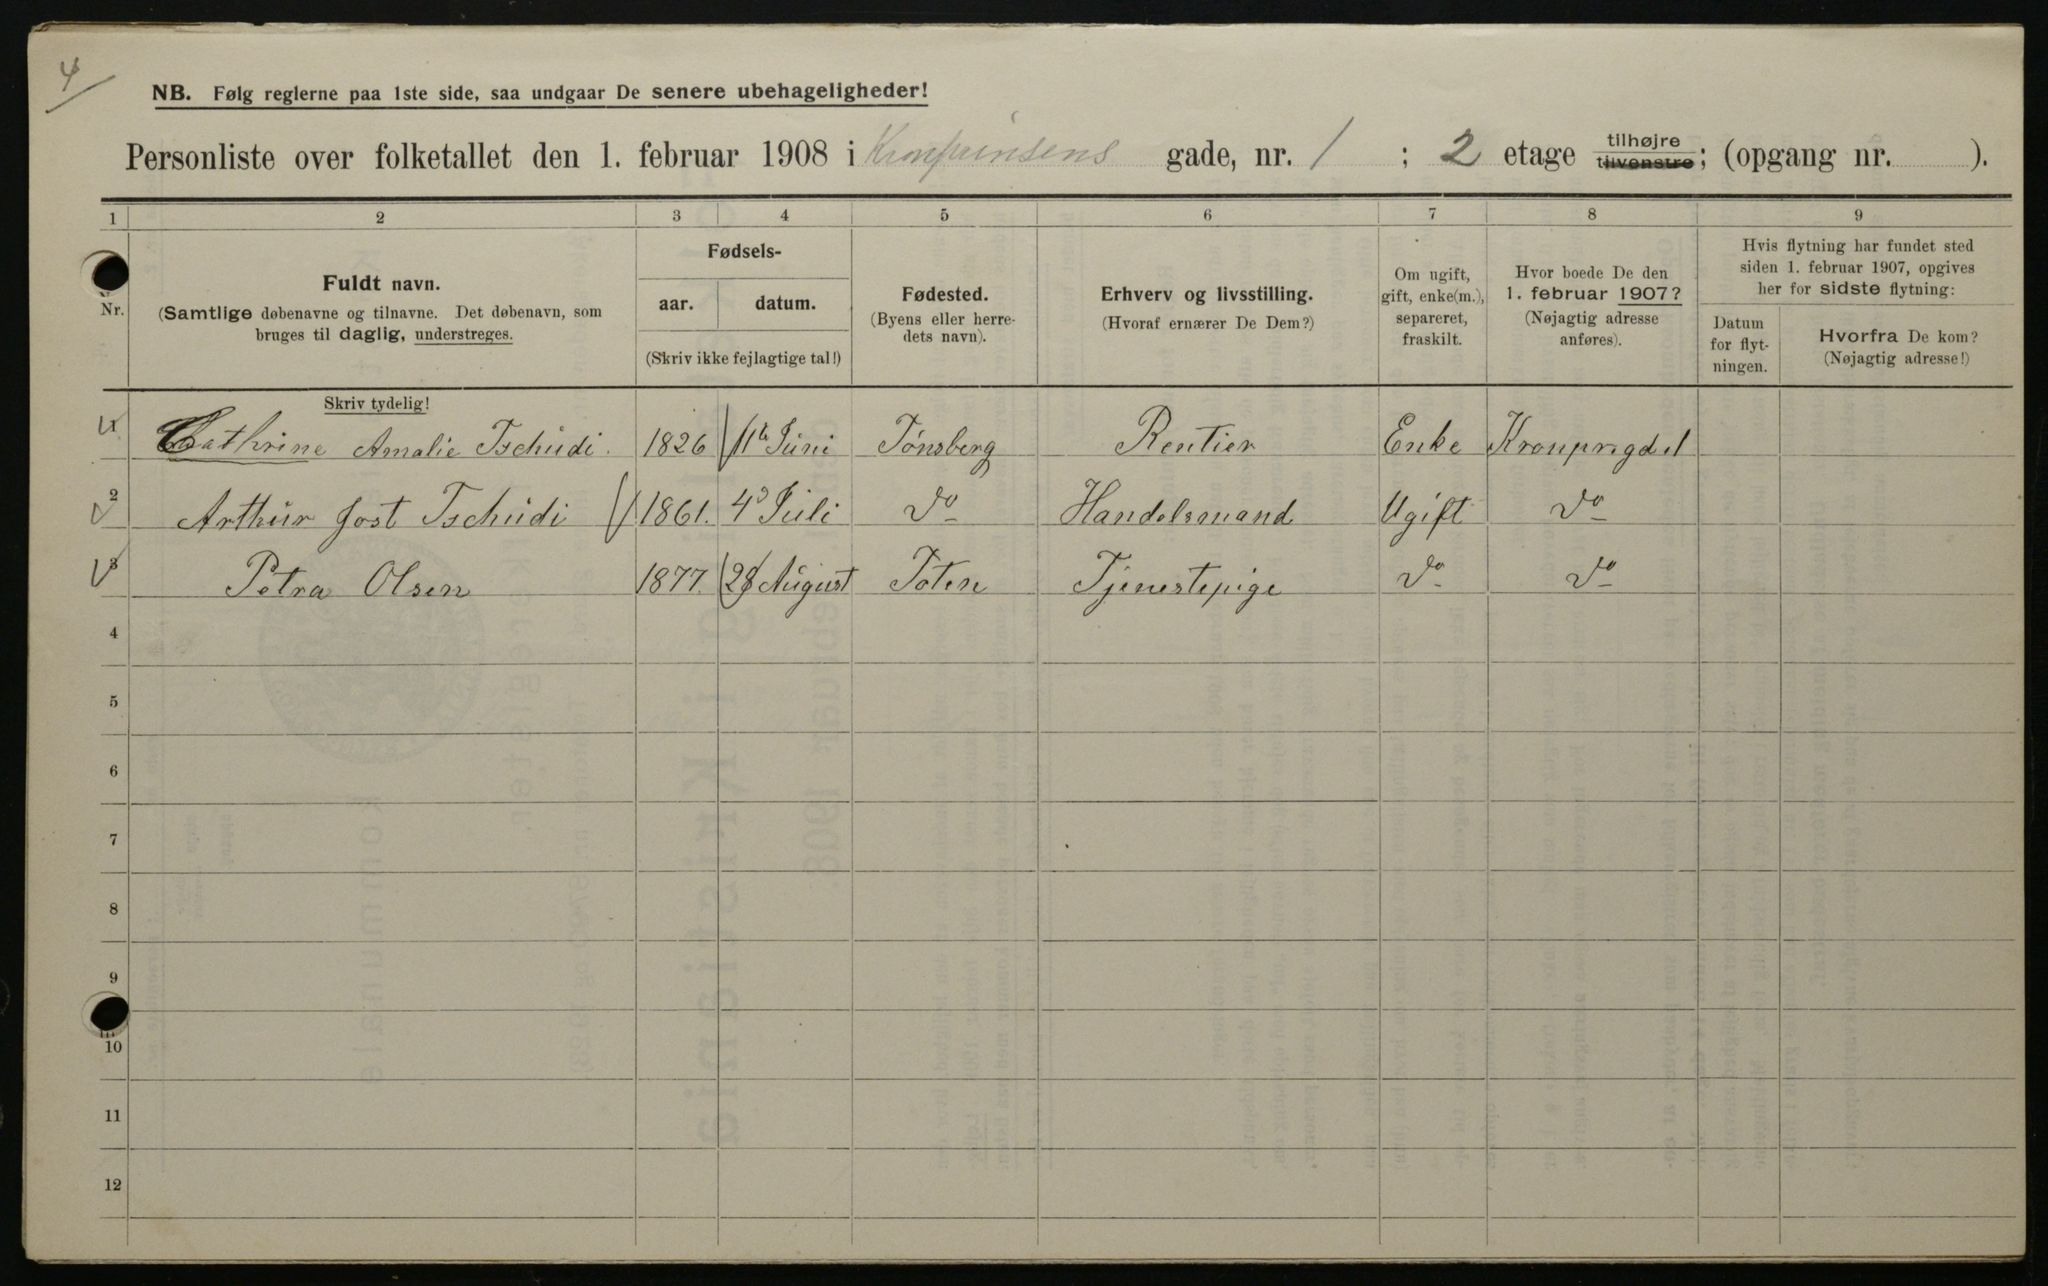 4
NB. Følg reglerne paa 1ste side, saa undgaar De senere ubehageligheder!
Personliste over folketallet den 1. februar 1908 i Kronprinsens gade, nr. 1 ; 2 etage tilhøjre tilvenstre; (opgang nr. ).
1 2 3 4 5 6 7 8 9
Nr.
Fuldt navn.
(Samtlige døbenavne og tilnavne. Det døbenavn, som
bruges til daglig, understreges.
Fødsels-
aar. datum.
(Skriv ikke fejlagtige tal!)
Fødested.
(Byens eller herre-
dets navn).
Erhverv og livsstilling.
(Hvoraf ernærer De Dem?)
Om ugift,
gift, enke(m.),
separeret,
fraskilt.
Hvor boede De den
1. februar 1907?
(Nøjagtig adresse
anføres).
Hvis flytning har fundet sted
siden 1. februar 1907, opgives
her for sidste flytning:
Datum
for flyt-
ningen.
Hvorfra De kom?
(Nøjagtig adresse!)
Skriv tydelig!
1 Cathrine Amalie Tschudi. 1826 11te Juni Tønsberg Rentier Enke Kronprgd 1
2 Arthur Jost Tschudi 1861. 4d Juli Do Handelsmand Ugift Do
3 Petra Olsen 1877. 28 August Toten Tjenestepige Do Do
4
5
6
7
8
9
10
11
12